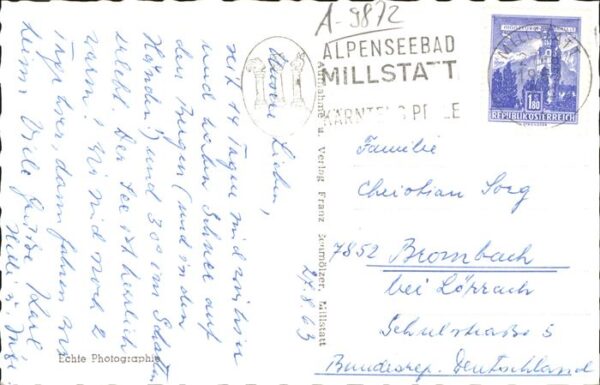 A-9872
ALPENSEEBAD
MILLSTATT
KÄRNTENS PERLE
1.80
REPUBLIK ÖSTERREICH
Familie
Christian Sorg
7852 Brombach
bei Lörrach
Schulstraße 5
Bundesrep. Deutschland
27.8.63
Unsere Lieben,
seit 14 Tagen sind wir hier
und haben Schnee auf
den Bergen (und in den
Händen!) und 30° im Schatten
erlebt. Der See ist herrlich
warm! Wir sind noch 2
Tage hier, dann fahren wir
heim. Viele Grüße Karl
Aufnahme u. Verlag Franz Schmölzer Millstatt
Echte Photographie